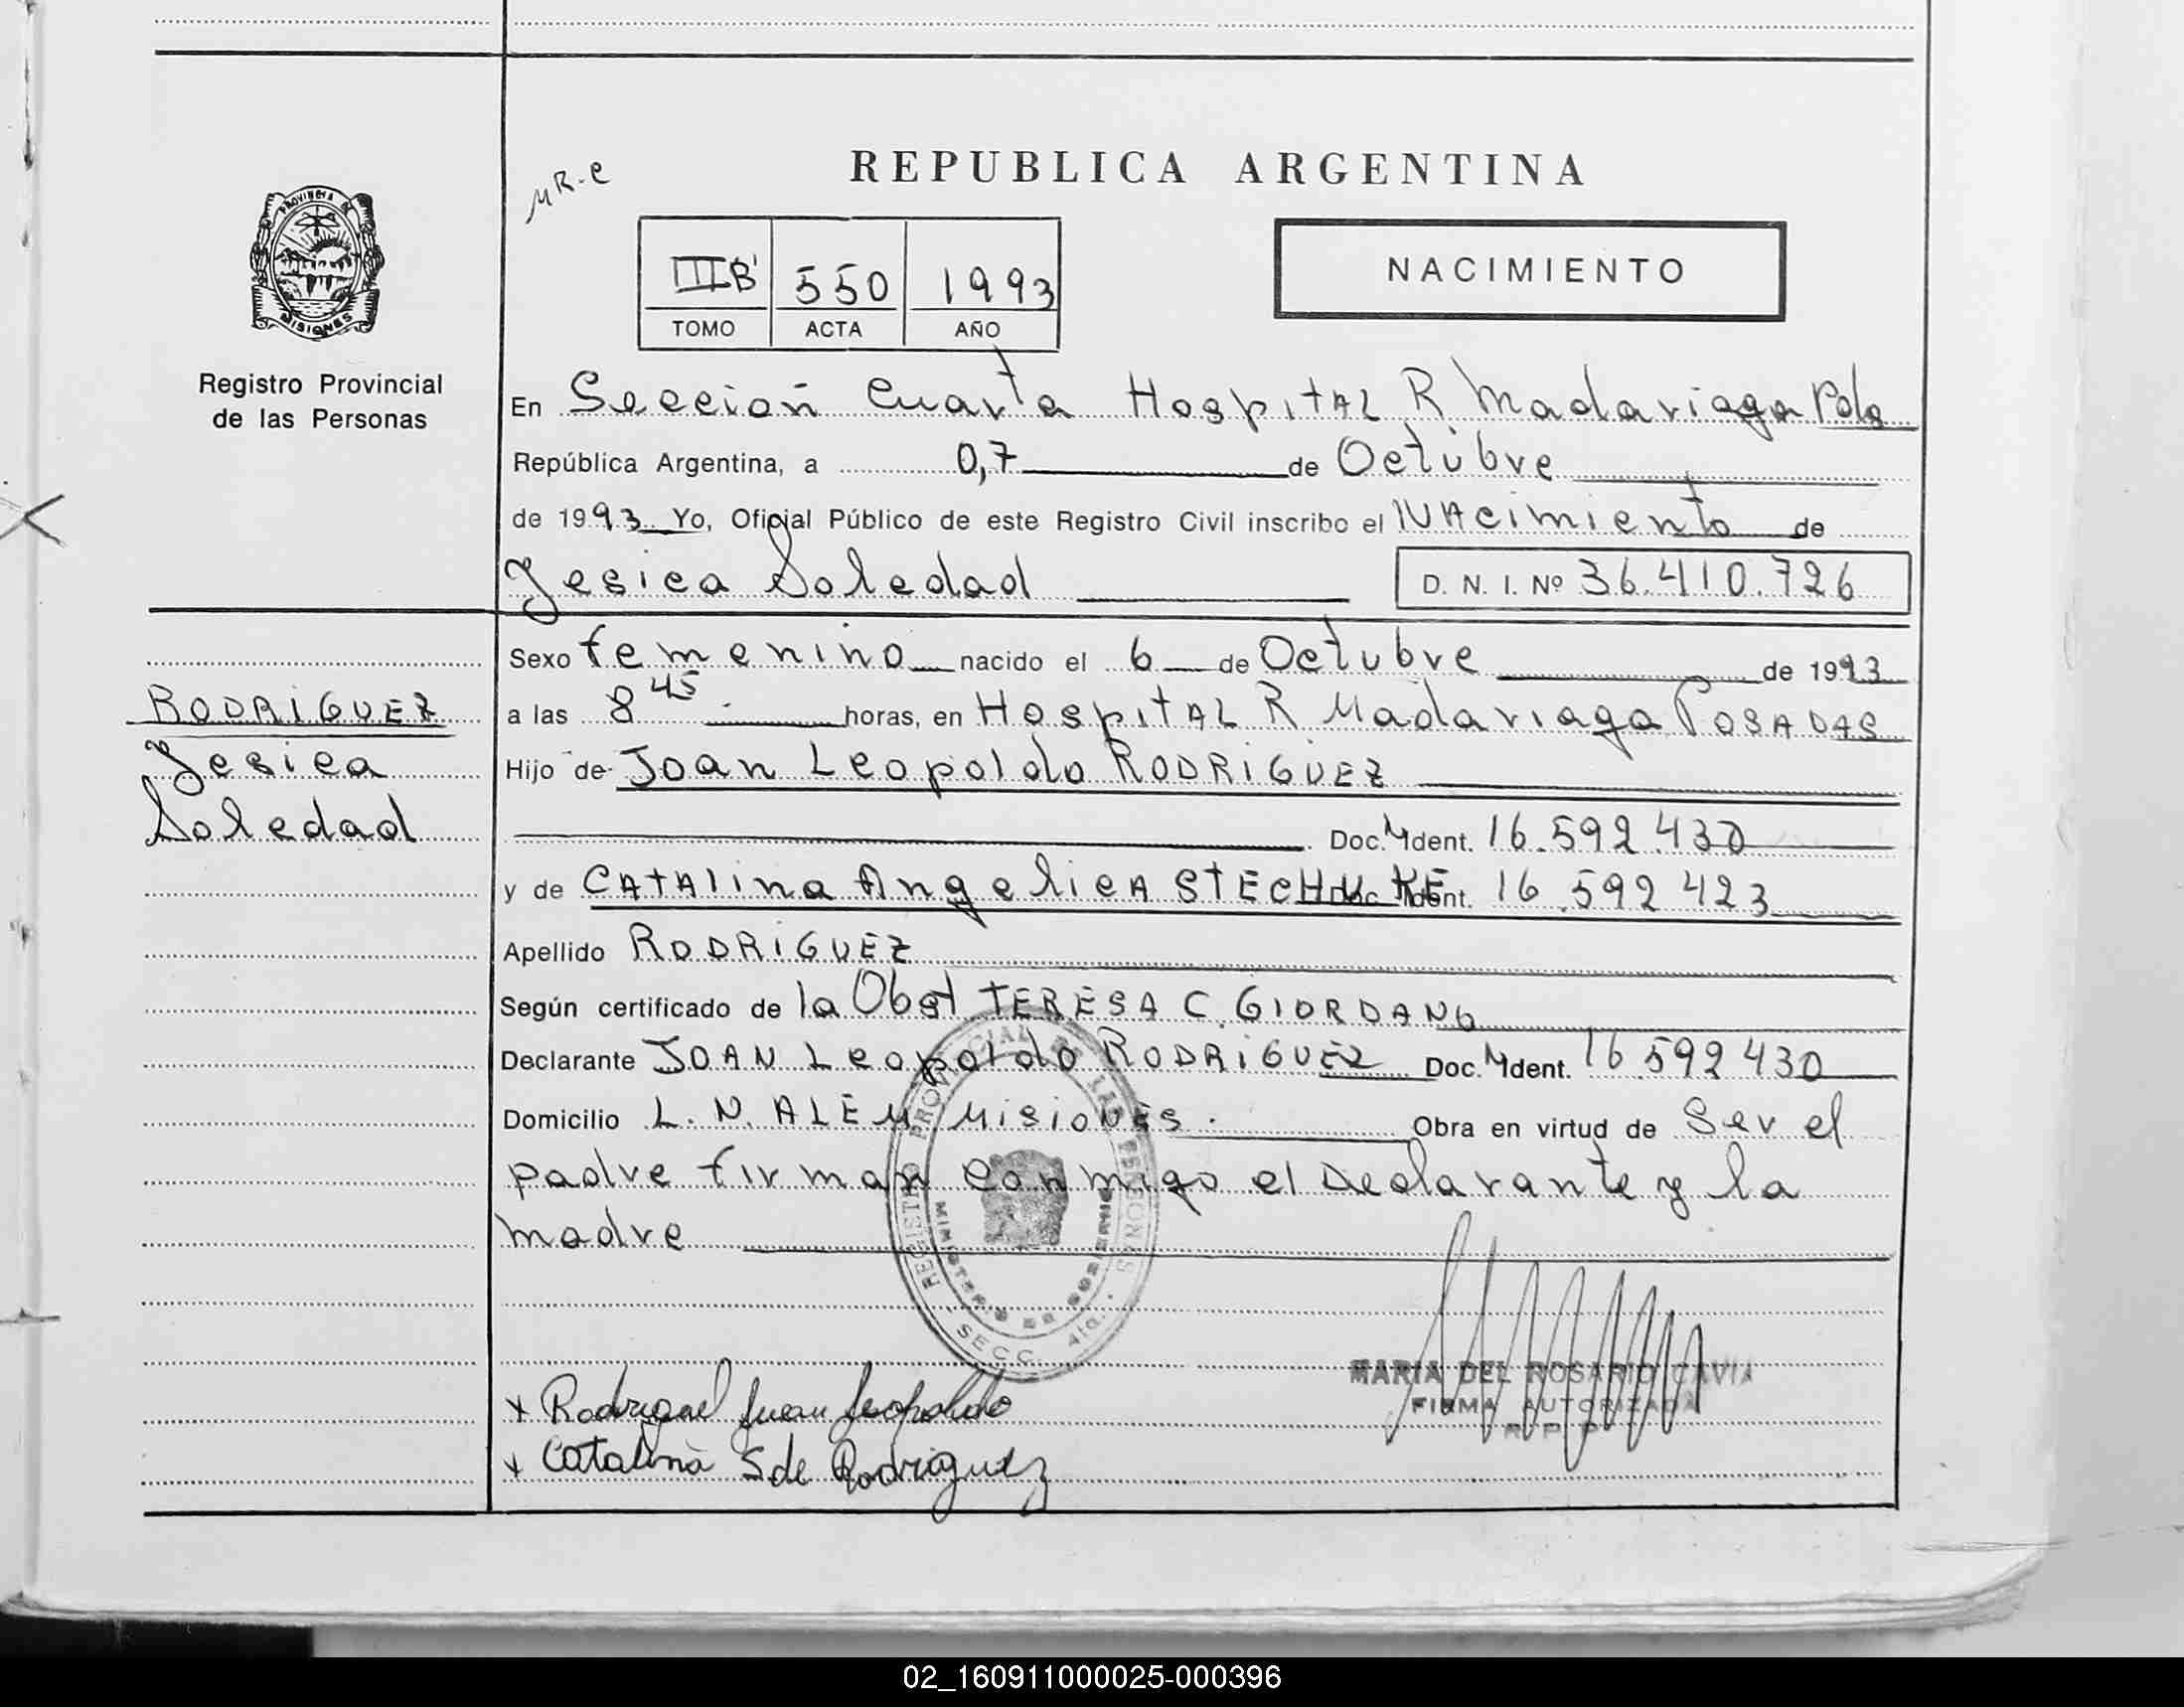 REPUBLICA ARGENTINA
MR-C
PROVINCIA DE MISIONES
IIIB' 550 1993
TOMO ACTA AÑO
NACIMIENTO
Registro Provincial
de las Personas
En Sección Cuarta Hospital R Madariaga Pdas
República Argentina, a 0,7 de Octubre
de 1993 Yo, Oficial Público de este Registro Civil inscribo el NAcimiento de
Jesica Soledad D. N. I. Nº 36.410.726
Sexo femenino nacido el 6 de Octubre de 1993
a las 8 45 horas, en HospitAL R Madariaga POSADAS
Hijo de JOan Leopoldo RODRiGUEZ
Doc. Ident. 16.592.430
y de CATALina AngelicA STECHUKE Doc. Ident. 16.592 423
Apellido RODRiGUEZ
Según certificado de la Obst TERESA C. GIORDANO
Declarante JOAN Leopoldo RODRiGUEZ Doc. Ident. 16 592 430
Domicilio L. N. ALEM MisiONES. Obra en virtud de Ser el
padre firman conmigo el Declarante y la
madre
RODRiGUEZ
Jesica
Soledad
REGISTRO PROVINCIAL DE LAS PERSONAS
MINISTERIO DE GOBIERNO
SECC. 4ta.
MARIA DEL ROSARIO CAVIA
FIRMA AUTORIZADA
R P P
x Rodriguez Juan Leopoldo
x Catalina S de Rodriguez
02_160911000025-000396